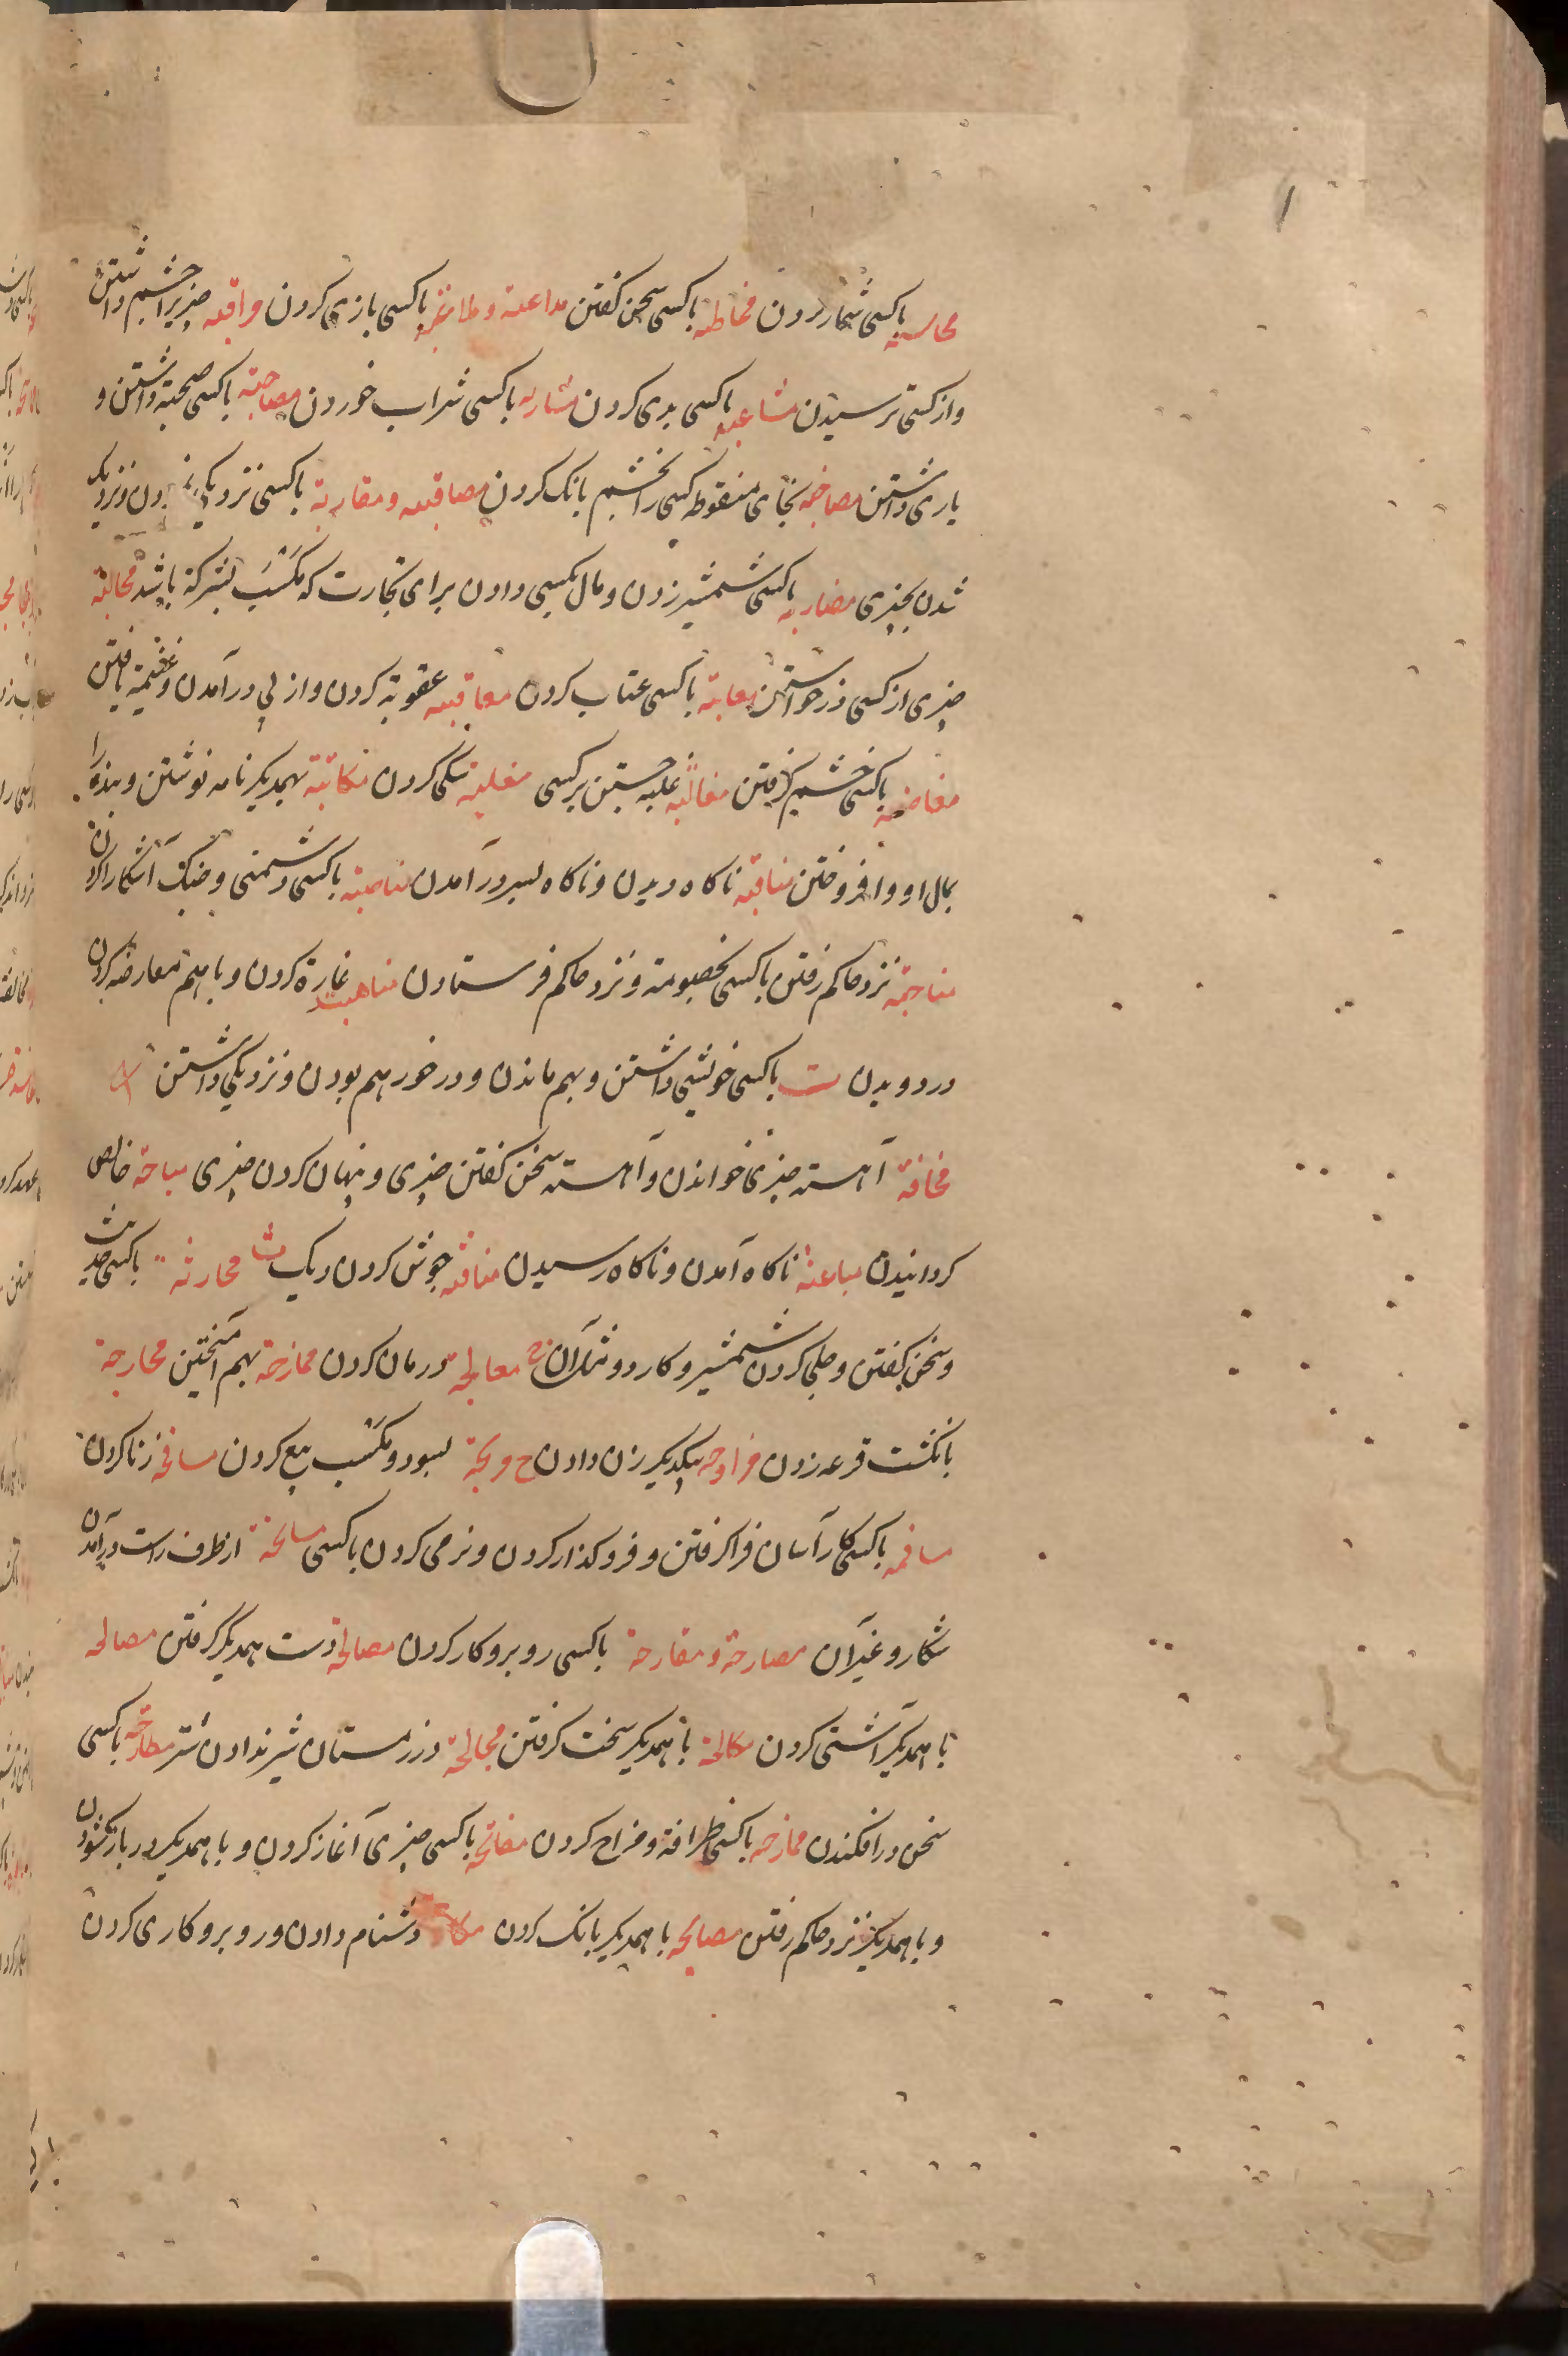 محاسبه باکسی شمار کردن مخاطبه باکسی سخن کفتن مداعبة وملاعبه باکسی بازی کردن مراقبه چیزیرا چشم داشتن
واز کسی ترسیدن مشاغبه باکسی بدی کردن مشاربه باکسی شراب خوردن مصاحبة باکسی صحبة داشتن و
یاری داشتن مصاخبه بخای منقوطه کسی را بخشم بانک کردن مصاقبه ومقاربة باکسی نزدیکی ونزدیک
شدن بچیزی مضاربه باکسی شمشیر زدن ومال بکسی دادن برای تجارت که مکسب بشرکة باشد مطالبة
چیزی از کسی درخواستن معاتبة باکسی عتاب کردن معاقبه عقوبة کردن واز پی درآمدن وغنیمة یافتن
مغاضبه باکسی خشم کرفتن مغالبه غلبه جستن بر کسی مکاتبة بهمدیکر نامه نوشتن وبنده را
بمال او وا فروختن مناقبه ناکاه دیدن وناکاه بسر درآمدن مناصبة باکسی دشمنی وجنک آشکارا کردن
نزد حاکم رفتن باکسی بخصومة ونزد حاکم فرستادن مناهبة غارة کردن وباهم معارضه کردن
در دویدن ت باکسی خویشی داشتن وبهم ماندن ودر خور هم بودن ونزدیکی داشتن
مخافتة آهسته چیزی خواندن وآهسته سخن کفتن چیزی وپنهان کردن چیزی مباحتة خالص
کردانیدن مباغتة ناکاه آمدن وناکاه رسیدن جوش کردن دیک ث محادثه باکسی حدیث
وسخن کفتن وجلی کردن شمشیر وکارد ومثل آن ج معالجة درمان کردن ممازجة بهم آمیختن مخارجة
بانکشت قرعه زدن مزاوجه بیکدیکر زن دادن ح مرابحة بسود ومکسب بیع کردن مسافحة زنا کردن
مسامحه باکسی کار آسان فرا کرفتن وفرو کذار کردن ونرمی کردن باکسی مسانحة از طرف راست درآمدن
شکار وغیر آن مصارحة ومقارحة باکسی روبرو کار کردن مصافحة دست همدیکر کرفتن مصالحه
باهمدیکر آشتی کردن مکالحة باهمدیکر سخت کرفتن مجالحة در زمستان شیر ندادن شتر مطارحه باکسی
سخن درافکندن ممازحه باکسی ظرافة ومزاح کردن مفاتحه باکسی چیزی آغاز کردن وباهمدیکر در باز کشودن
وباهمدیکر نزد حاکم رفتن مصایحه باهمدیکر بانک کردن دشنام دادن وروبرو کاری کردن